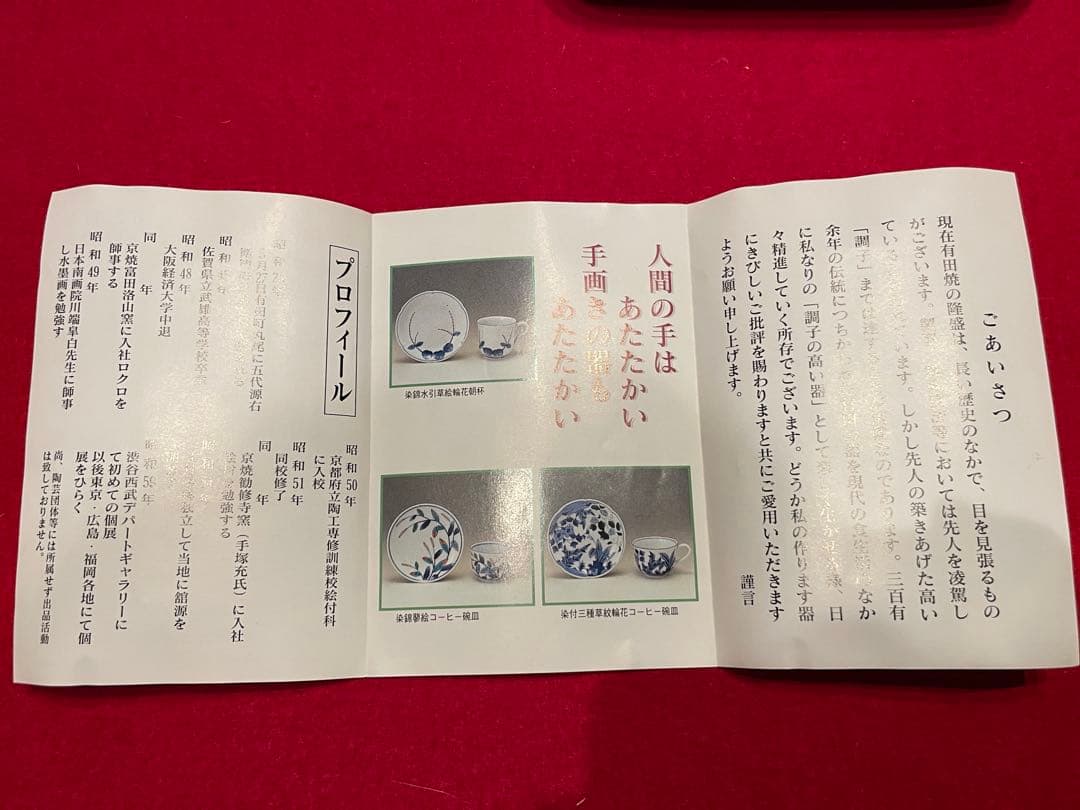 ごあいさつ
現在有田焼の隆盛は、長い歴史のなかで、目を見張るもの
がございます。製
等においては先人を凌駕し
ている
います。しかし先人の築きあげた高い
「調子」までは達
のであります。三百有
余年の伝統につちか
器を現代の食生
なか
に私なりの「調子の高い器」として
日
々精進していく所存でございます。どうか私の作ります器
にきびしいご批評を賜わりますと共にご愛用いただきます
ようお願い申し上げます。
謹言
人間の手は
あたたかい
手画きの器も
あたたかい
染錦水引草絵輪花朝杯
染錦蓼絵コーヒー碗皿
染付三種草紋輪花コーヒー碗皿
プロフィール
昭和
月27日有田町丸尾に五代源右
昭和
佐賀県立武雄高等学校卒
昭和48年
大阪経済大学中退
同 年
京焼富田洛山窯に入社ロクロを
師事する
昭和49年
日本南画院川端皐白先生に師事
し水墨画を勉強す
昭和50年
京都府立陶工専修訓練校絵付科
に入校
昭和51年
同校修了
同 年
京焼勧修寺窯（手塚充氏）に入社
絵付を勉強する
独立して当地に舘源を
昭和59年
渋谷西武デパートギャラリーに
て初めての個展
以後東京・広島・福岡各地にて個
展をひらく
尚、陶芸団体等には所属せず出品活動
は致しておりません。